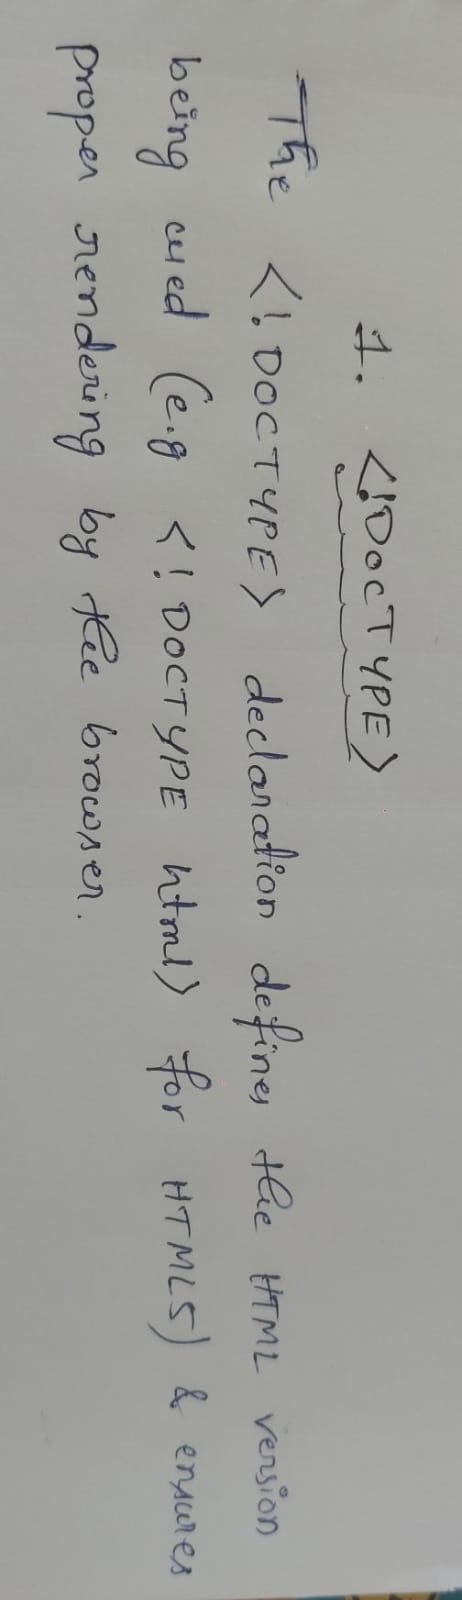 1. <!DOCTYPE>
The <!DOCTYPE> declaration defines the HTML version
being used (e.g <!DOCTYPE html> for HTML5) & ensures
proper rendering by the browser.